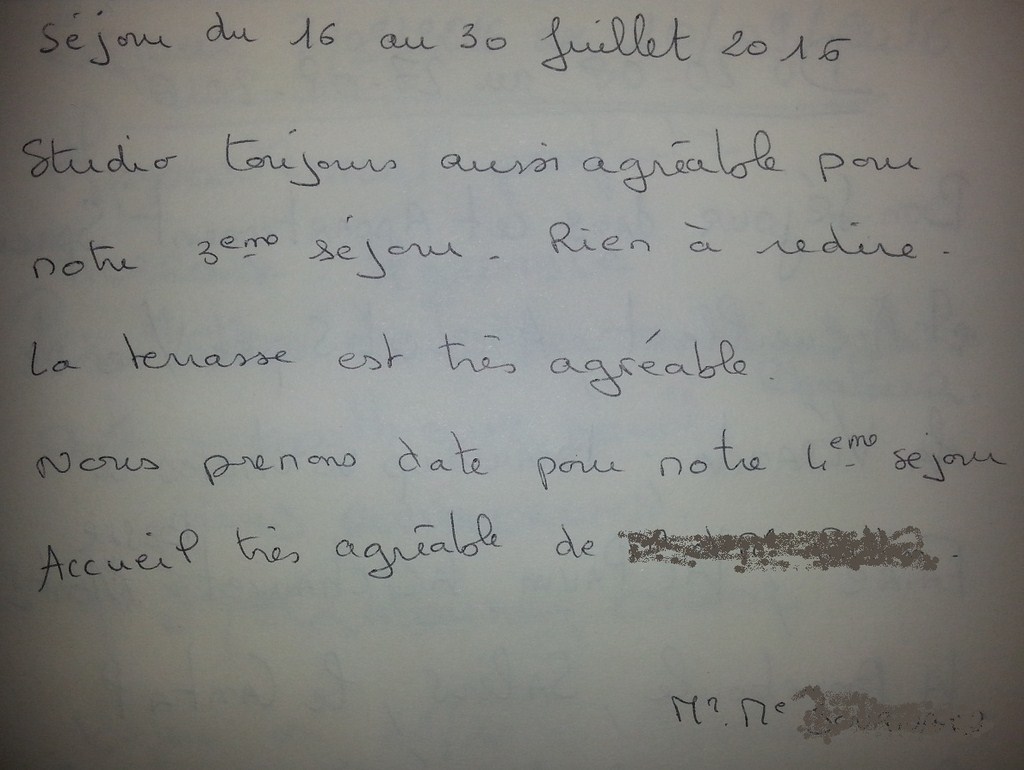 Séjour du 16 au 30 Juillet 2016
Studio toujours aussi agréable pour
notre 3eme séjour. Rien à redire.
La terrasse est très agréable.
Nous prenons date pour notre 4eme sejour
Accueil très agréable de
Mr. Me